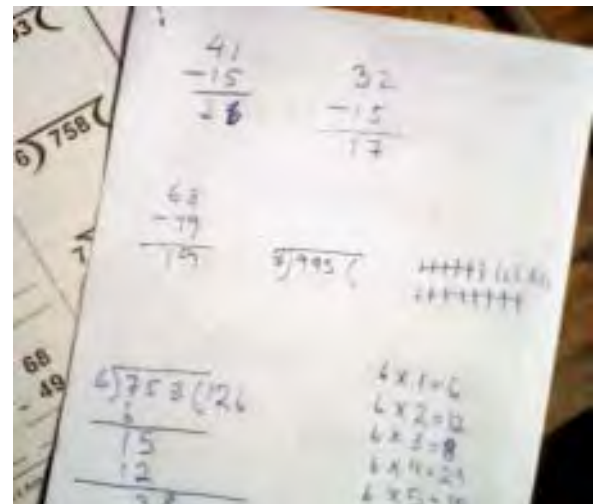 53(
6)758(
7
68
- 49
41
-15
26
32
-15
17
68
-49
19
)995(
6)758(126
6
15
12
38
6 x 1=6
6 x 2=12
6 x 3=8
6 x 4=24
6 x 5=